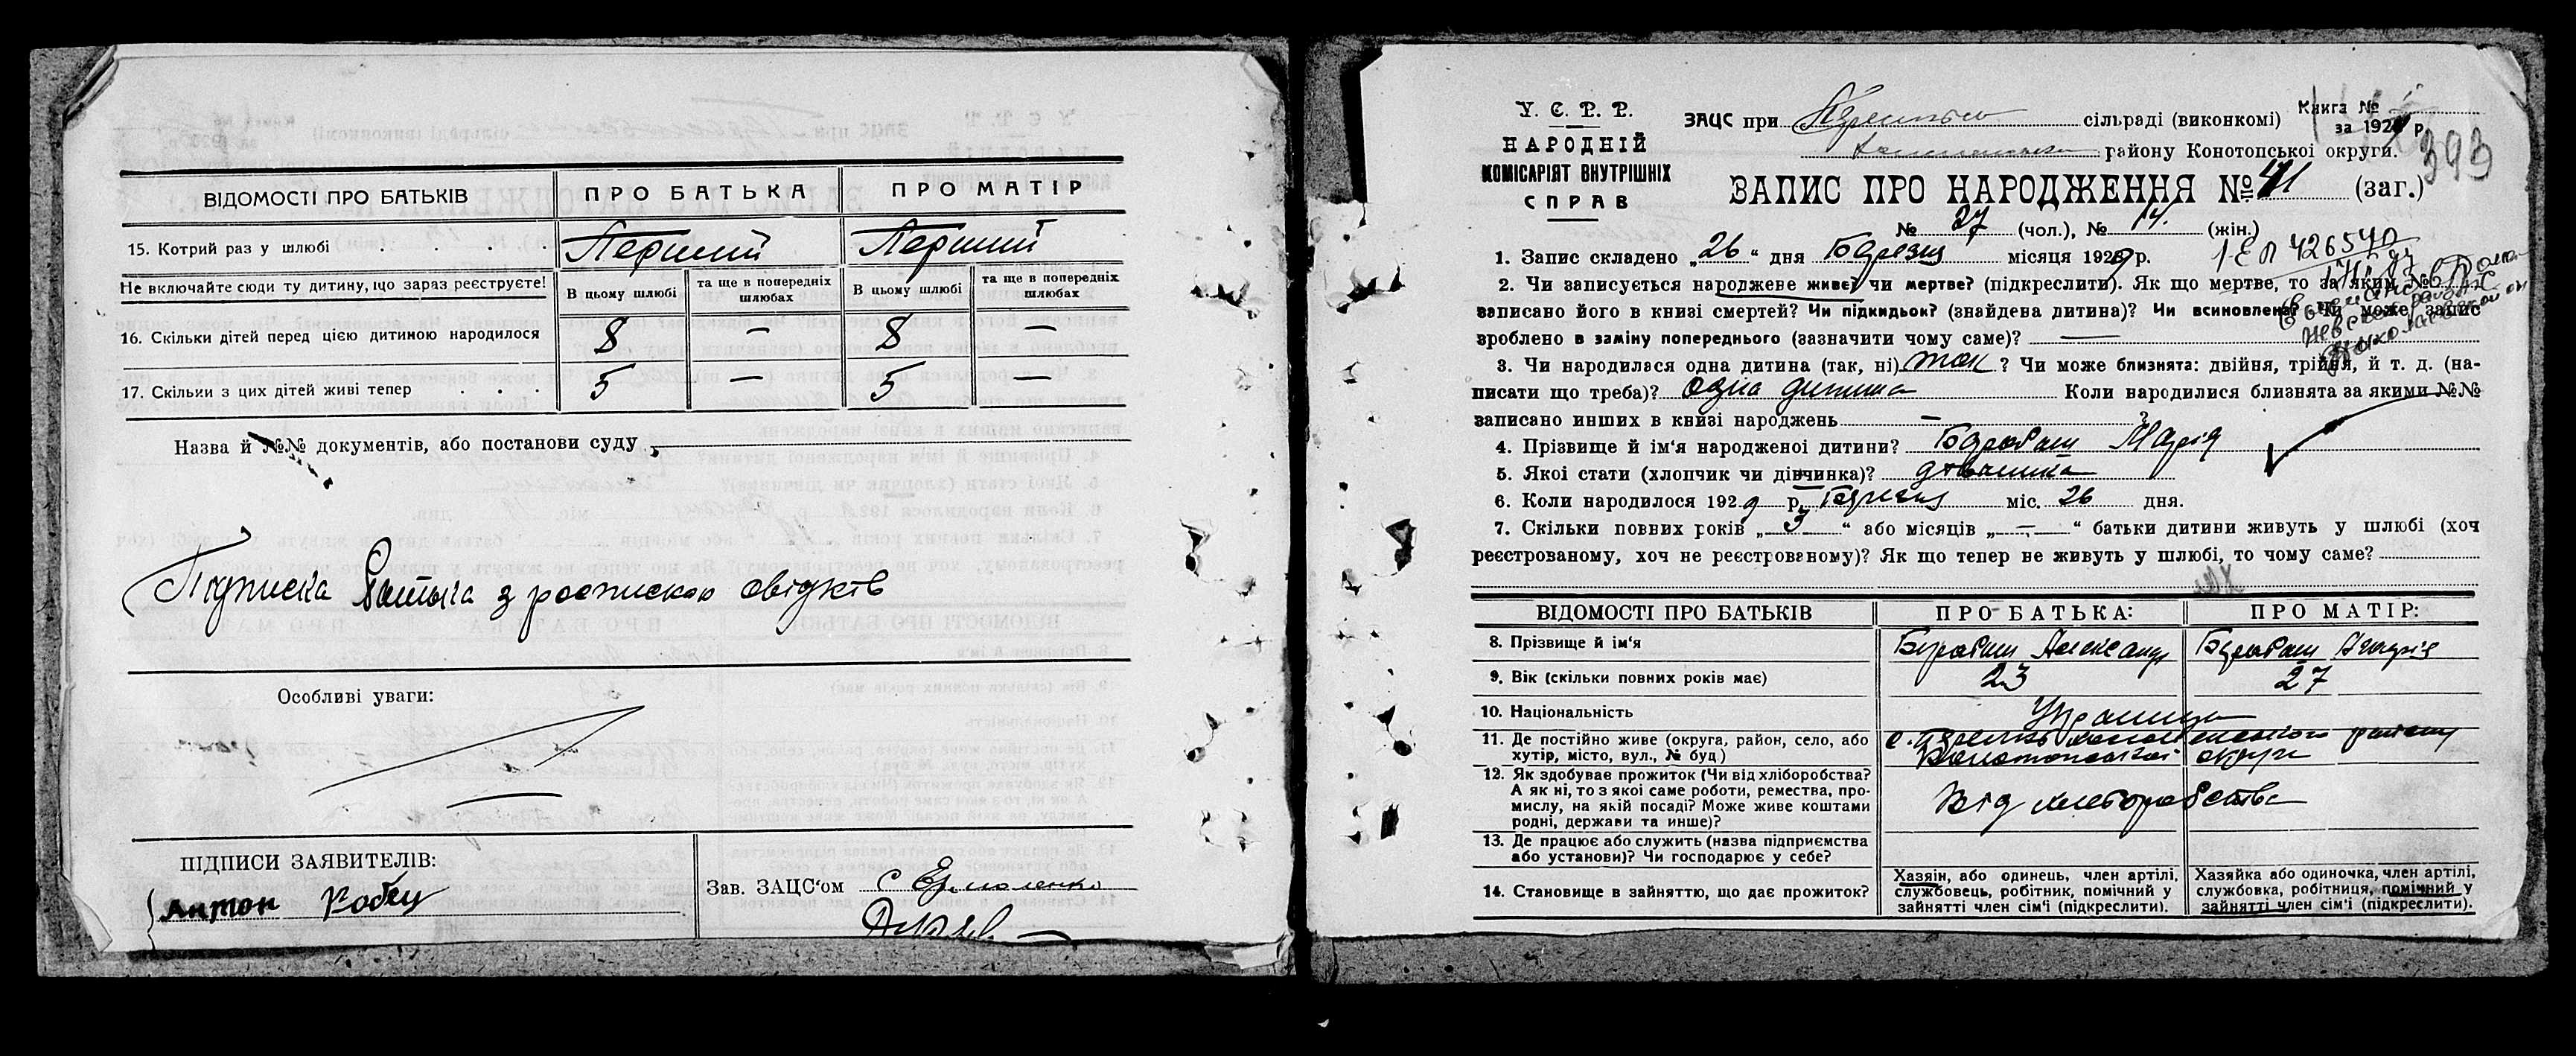 ВІДОМОСТІ ПРО БАТЬКІВ
ПРО БАТЬКА
ПРО МАТІР
15. Котрий раз у шлюбі
Перший
Перший
Не включайте сюди ту дитину, що зараз реєструєте!
В цьому шлюбі
та ще в попередніх шлюбах
В цьому шлюбі
та ще в попередніх шлюбах
16. Скільки дітей перед цією дитиною народилося
8 — 8 —
17. Скільки з цих дітей живі тепер
5 — 5 —
Назва й №№ документів, або постанови суду
Підписка батька з розпискою свідків
Особливі уваги:
ПІДПИСИ ЗАЯВИТЕЛІВ:
Антон
Зав. ЗАЦС'ом С Ермоленко
У. С. Р. Р.
НАРОДНІЙ
КОМІСАРІЯТ ВНУТРІШНІХ
СПРАВ
ЗАЦС при сільраді (виконкомі)
Книга №
за 1929 р.
району Конотопської округи.
393
ЗАПИС ПРО НАРОДЖЕННЯ № 41 (заг.)
№ 27 (чол.), № 14. (жін.)
1. Запис складено „26“ дня Березня місяця 1929 р.
1-ЕЛ 426540
2. Чи записується народжене живе, чи мертве? (підкреслити). Як що мертве, то за яким №
записано його в книзі смертей? Чи підкидьок? (знайдена дитина)? Чи всиновлена? Чи може, запис
зроблено в заміну попереднього (зазначити чому саме)? —
3. Чи народилася одна дитина (так, ні) так ? Чи може близнята: двійня, трійня, й т. д. (на-
писати що треба)? одна дитина Коли народилися близнята за якими №№
записано инших в книзі народжень — ?
4. Прізвище й ім'я народженої дитини? Марія
5. Якої стати (хлопчик чи дівчинка)? дівчинка
6. Коли народилося 1929 р. Березня міс. 26 дня.
7. Скільки повних років „ 3 “ або місяців „ — “ батьки дитини живуть у шлюбі (хоч
реєстрованому, хоч не реєстрованому)? Як що тепер не живуть у шлюбі, то чому саме?
ВІДОМОСТІ ПРО БАТЬКІВ
ПРО БАТЬКА:
ПРО МАТІР:
8. Прізвище й ім'я
Александр
9. Вік (скільки повних років має)
23
27
10. Національність
Українці
11. Де постійно живе (округа, район, село, або
хутір, місто, вул., № буд)
Конотопської округи
12. Як здобуває прожиток (Чи від хліборобства?
А як ні, то з якої саме роботи, ремества, про-
мислу, на якій посаді? Може живе коштами
родні, держави та инше)?
Від хліборобства
13. Де працює або служить (назва підприємства
або установи)? Чи господарює у себе?
14. Становище в зайняттю, що дає прожиток?
Хазяїн, або одинець, член артілі,
службовець, робітник, помічний у
зайнятті член сім'ї (підкреслити).
Хазяйка або одиночка, член артілі,
службовка, робітниця, помічний у
зайнятті член сім'ї (підкреслити).